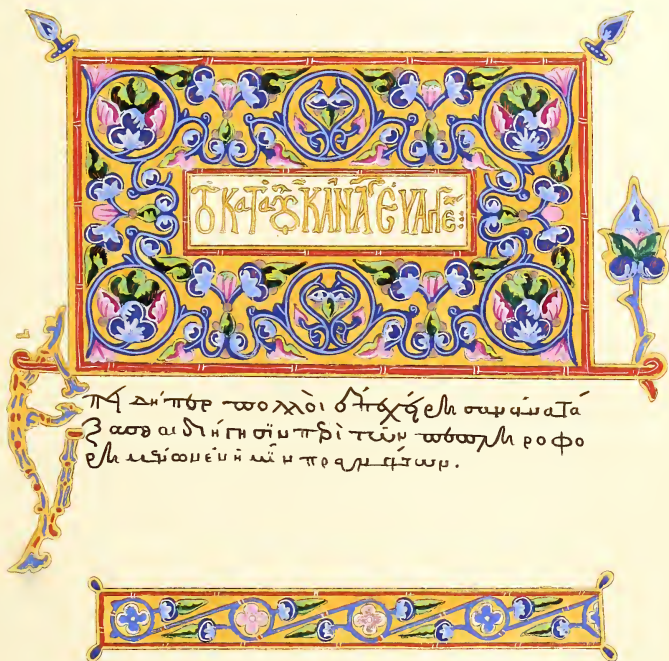 Τὸ ΚΑΤΑ ΛΟΥΚΑΝ ΑΓ ΕΥΑΓΓΕ
Ἐπειδήπερ πολλοὶ ἐπεχείρησαν ἀνατά
ξασθαι διήγησϊν περὶ τῶν πεπληροφο
ρημένων ἐν ἡμῖν πραγμάτων.